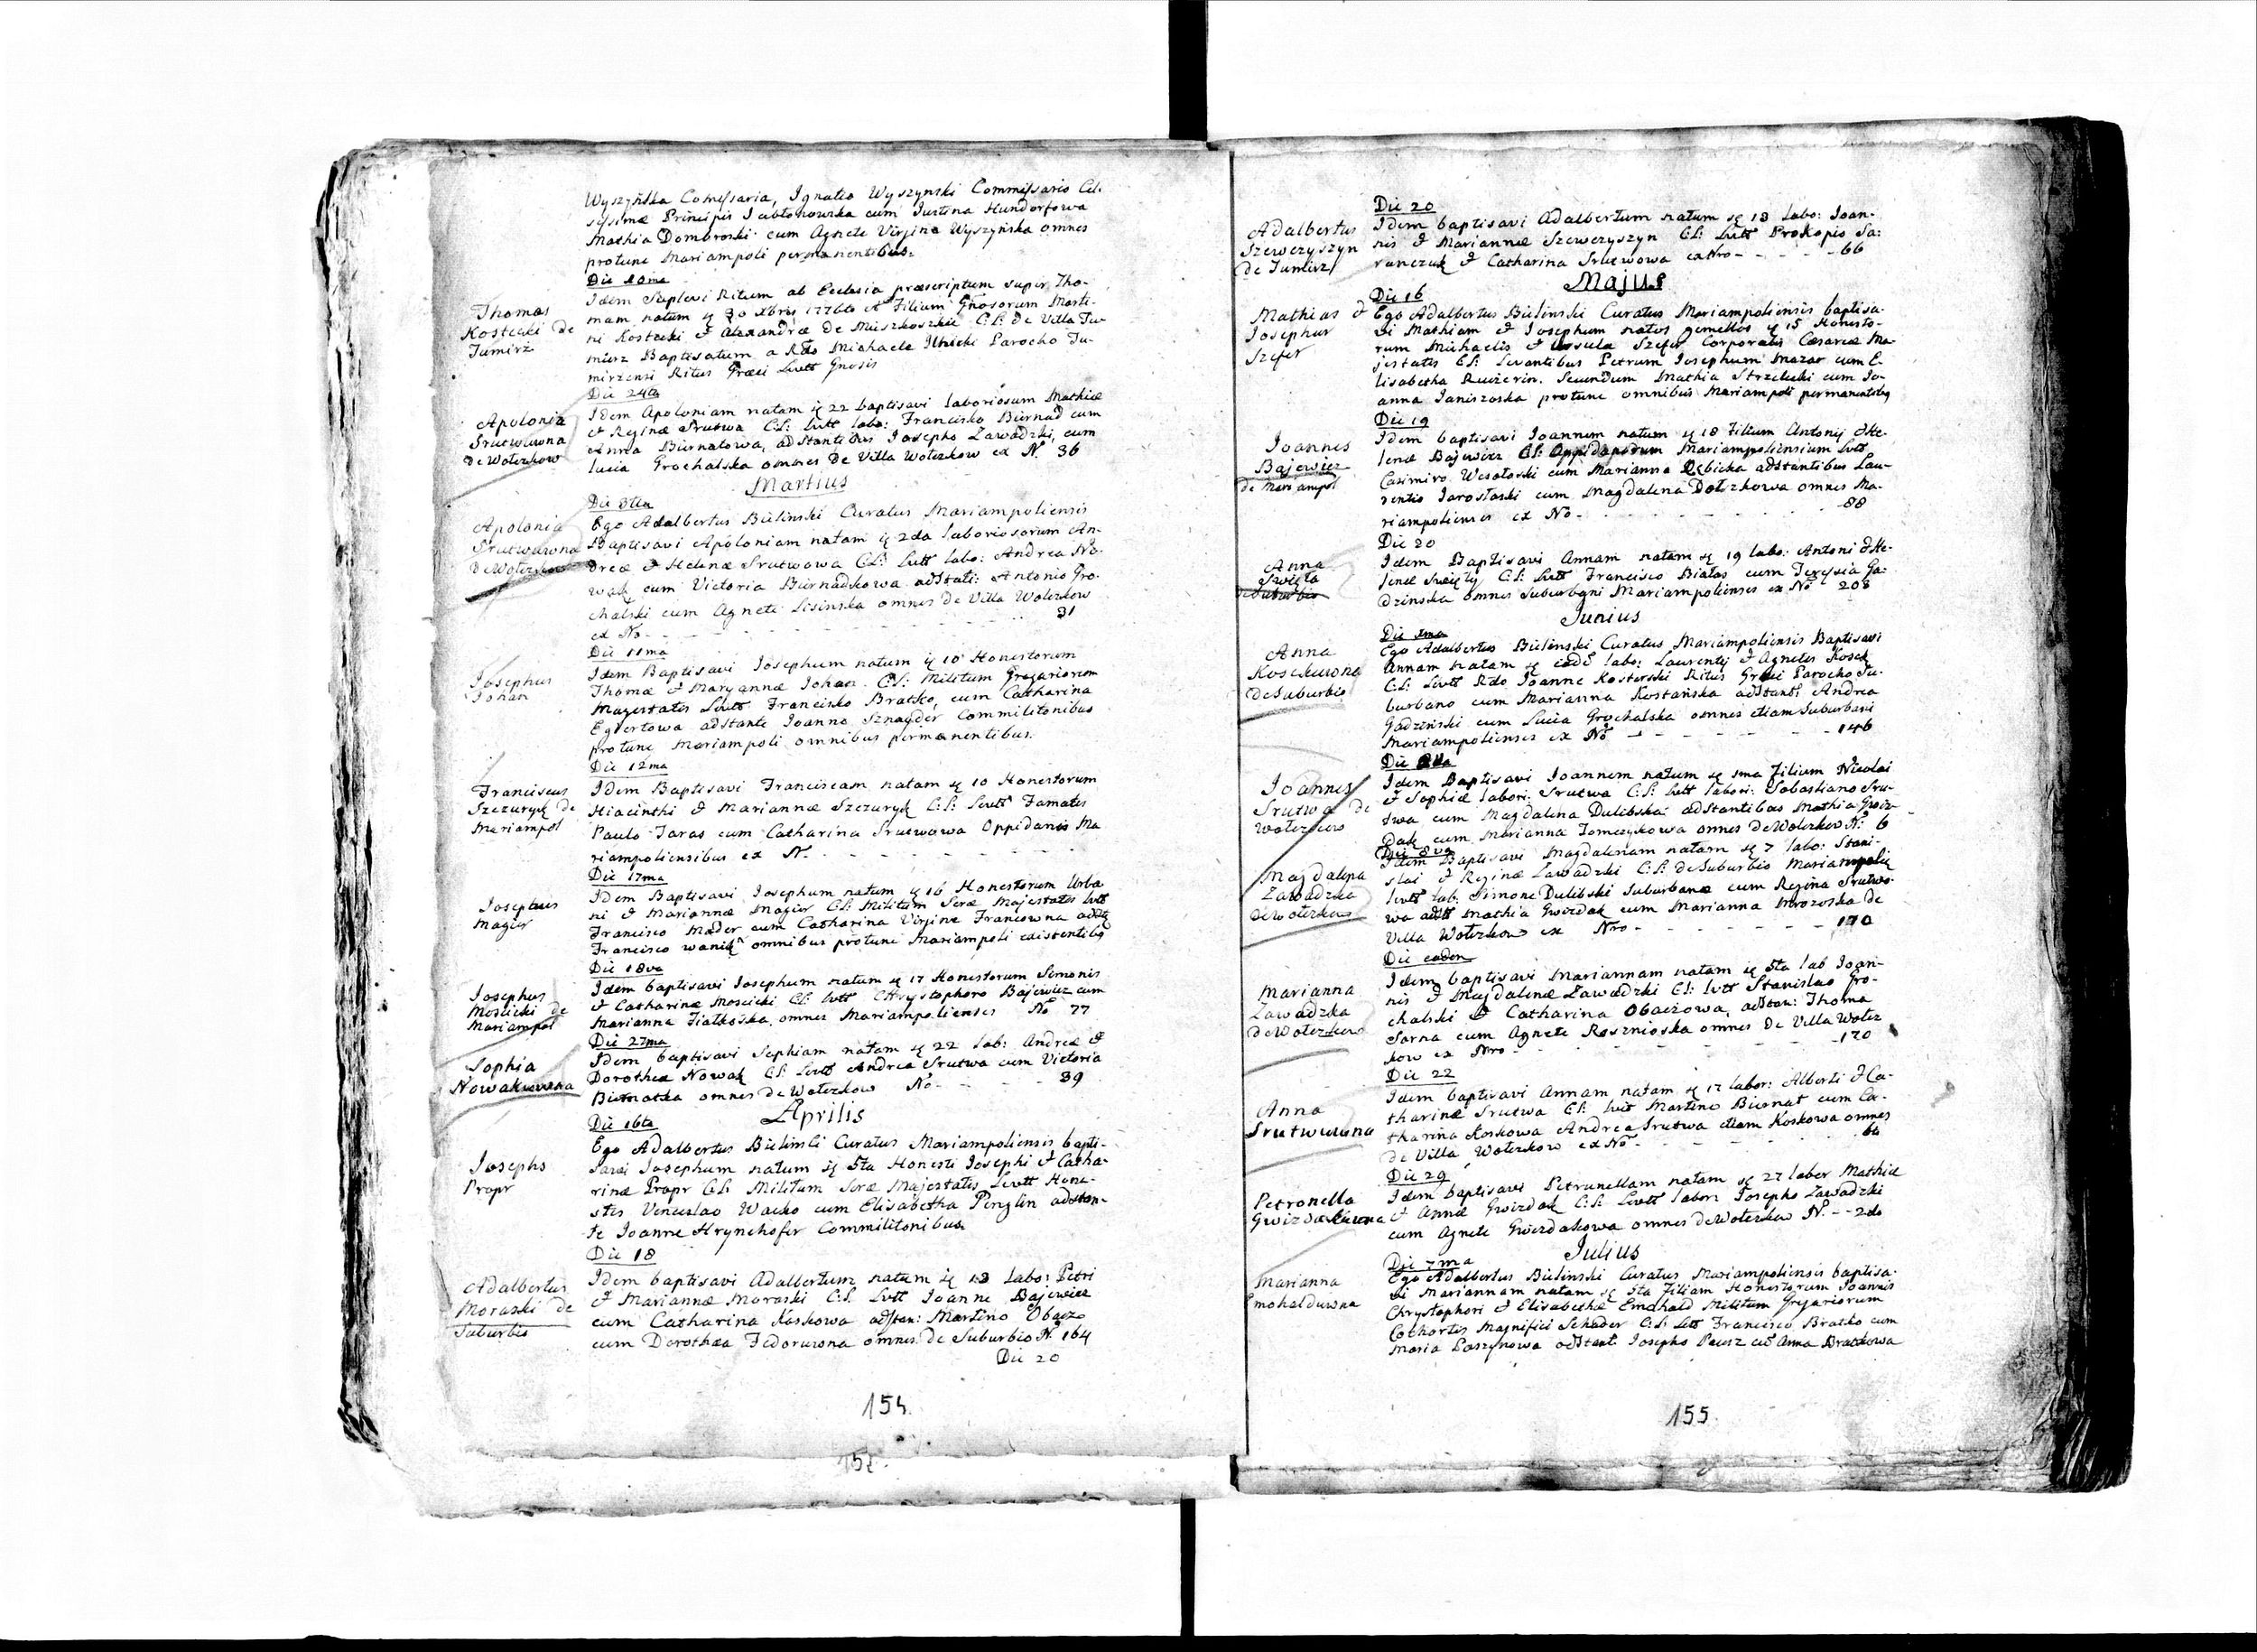 Wyszyńska Comissaria, Ignatio Wyszynski Commissario Cel.
sissimæ Principis Jabłonowska cum Justina Hundorfowa
Mathia Dombroski cum Agnete Virgine Wyszyńska omnes
protunc Mariampoli permanentibus.
Die 10ma
Thomas
Kostecki de
Jumirz
Idem Suplevi Ritum ab Ecclesia præscriptum super Tho-
mam natum 30 Xbris 1776to Filium Gnosorum Marti-
ni Kostecki & Alexandræ de Muszkoszkie C: L: De Villa Tu-
mirz Baptisatum a Rdo Michaele Ilnicki Parocho Ju-
mirzensi Ritus Græci Lvtt Gnosis
Die 24ta
Apolonia
Srutwuwna
de Wołczkow
Idem Apoloniam natam 22 baptisavi laboriosum Mathiæ
& Reginæ Srutwa C: L: Lvtt labo: Francisko Biernad cum
Anna Biernatowa, adstantibus Josepho Zawadzki, cum
lucia Grochalska omnes De Villa Wołczkow ex N 36
Martius
Die 3tia
Apolonia
Srutwuwna
de Wołczkow
Ego Adalbertus Bielinski Curatus Mariampoliensis
Baptisavi Apoloniam natam 2da laboriosorum An-
dreæ & Helenæ Srutwowa C: L: Lvtt labo: Andrea No-
wak cum Victoria Biernadkowa adstati: Antonio Gro-
chalski cum Agnete Lisinska omnes de Villa Wołczkow
ex No - - - 31
Die 11ma
Josephus
Johan
Idem Baptisavi Josephum natum 10 Honestorum
Thomæ & Maryannæ Johan C: L: Militum Gregariorum
Magestatis Lvtt Francisko Bratko, cum Catharina
Egvertowa adstante Joanne Sznayder Commilitonibus
protunc Mariampoli omnibus permanentibus.
Die 12ma
Franciscus
Szczuryk de
Mariampol
Idem Baptisavi Franciscam natam 10 Honestorum
Hiacinthi & Mariannæ Szczuryk C: L: Lvtt Famatis
Paulo Taras cum Catharina Srutwowa Oppidanis Ma
riampoliensibus ex N. - - -
Die 17ma
Josephus
Magier
Idem Baptisavi Josephum natum 16 Honestorum Urba
ni & Mariannæ Magier C: L: Militum Scræ Majestatis Lvtt
Francisco Mader cum Catharina Virgine Francowna
Francisco Wanik omnibus protunc Mariampoli existentibg
Die 18va
Josephus
Moslicki de
Mariampol
Idem baptisavi Josephum natum 17 Honestorum Simonis
& Catharinæ Moscicki C: L: Lvtt Chrystophoro Bajewicz cum
Marianna Fiałkoska omnes Mariampolienses No 77
Die 27ma
Sophia
Nowakuwna
Idem baptisavi Sophiam natam 22 Lab: Andreæ &
Dorothea Nowak C: L: Lvtt Andrea Srutwa cum Victoria
Biernatka omnes de Wołczkow No - - - 39
Aprilis
Die 16ta
Josephs
Propr
Ego Adalbertus Bielinski Curatus Mariampoliensis bapti-
savi Josephum natum 5ta Honesti Josephi & Catha-
rinæ Propr C: L: Militum Scræ Majestatis Lvtt Hone-
stis Venceslao Wacko cum Elisabetha Penzlin adstan-
te Joanne Hrynehofer Commilitonibus
Die 18
Adalbertus
Moraski de
Suburbio
Idem baptisavi Adalbertum natum 13 Labo: Petri
& Mariannæ Moraski C: L. Lvtt Joanne Bajewicz
cum Catharina Koskowa adstan: Martino Obacz
cum Dorothea Fedoruwna omnes de Suburbio N. 164
Die 20
154
157.
Die 20
Adalbertus
Szewczyszyn
de Jumirz
Idem baptisavi Adalbertum natum 18 Labo: Joan-
nis & Mariannæ Szewczyszyn C: L: Lvtt Prokopio Sa:
ranczuk & Catharina Srutwowa ex Nro - - - 66
Majus
Die 16
Mathias &
Josephus
Szefer
Ego Adalbertus Bielinski Curatus Mariampoliensis baptisa-
vi Mathiam & Josephum natos gemellos 15 Honesto-
rum Michaelis & Ursulæ Szefer Corporalis Cæsareæ Ma-
jestatis C: L: Levantibus Petrum Josephum Mazar cum E-
lisabetha Ruzierin. Secundum Mathia Strzelecki cum Jo-
anna Janiszoska protunc omnibus Mariampoli permanentibg
Die 19
Joannes
Bajewicz
de Mariampol
Idem baptisavi Joannem natum 18 Filium Antonij & He-
lenæ Bajewicz C: L: Oppidanorum Mariampoliensium Lvtt
Casimiro Wesołoski cum Marianna Dębicka adstantibus Lau-
rentio Jarosłaski cum Magdalena Dołczkowa omnes Ma-
riampolienses ex No - - - 88
Die 20
Anna
Swięta
de Suburbio
Idem Baptisavi Annam natam 19 labo: Antoni & He-
lenæ Swięty C: L: Lvtt Francisco Białas cum Teressia Ga-
dzinska omnes Suburbani Mariampolienses ex No 208
Junius
Die 1ma
Anna
Kosckuwna
de Suburbio
Ego Adalbertus Bielinski Curatus Mariampoliensis Baptisavi
Annam natam eadē labo: Laurentij & Agnetis Kosek
C: L: Lvtt Rdo Joanne Kosterski Ritus Græci Parocho Su-
burbano cum Marianna Kostańska adstant: Andrea
Gadzinski cum Lucia Grochalska omnes etiam Suburbani
Mariampolienses ex No - - - 146
Die 2da
Joannes
Srutwa de
Wołczkow
Idem Baptisavi Joannem natum 1ma Filium Nicolai
& Sophiæ labori: Srutwa C: L: Lvtt labori: Sobastiano Sru-
twa cum Magdalena Dulibska adstantibus Mathia Gwiz-
dak cum Marianna Tomczykowa omnes de Wołczkow N: 6
Die 8va
Magdalena
Zawadzka
de Wołczkow
Idem Baptisavi Magdalenam natam 7 labo: Stani-
slai & Reginæ Zawadzki C: L: de Suburbio Mariampolis
Lvtt lab: Simone Dulibski Suburbanæ cum Regina Srutwo-
wa adtt Mathia Gwizdak cum Marianna Mrozoska de
Villa Wołczkow ex Nro - - - 170
Die eadem
Marianna
Zawadzka
de Wołczkow
Idem baptisavi Mariannam natam 5ta lab Joan-
nis & Magdalenæ Zawadzki C: L: Lvtt Stanislao Gro-
chalski & Catharina Obaczowa, adstan: Thoma
Sarna cum Agnete Rosznioska omnes De Villa Wołcz
kow ex Nro - - - 170
Die 22
Anna
Srutwuwna
Idem baptisavi Annam natam 17 labor: Alberti & Ca-
tharinæ Srutwa C: L: Lvtt Martino Biernat cum Ca-
tharina Koskowa Andrea Srutwa etiam Koskowa omnes
de Villa Wołczkow ex No - - - 66
Die 29
Petronella
Gwizdakuwna
Idem baptisavi Petrunellam natam 27 labor Mathiæ
& Annæ Gwizdak C: L: Lvtt labori Josepho Zawadzki
cum Agnete Gwizdakowa omnes de Wołczkow N. - - 2do
Julius
Die 7ma
Marianna
Emohalduwna
Ego Adalbertus Bielinski Curatus Mariampoliensis baptisa-
vi Mariannam natam 5ta Filiam Honestorum Joannis
Chrystophori & Elisabethæ Emohald Militum Gregariorum
Cohortis Magnifici Schader C: L: Lvtt Francisco Bratko cum
Maria Paszynowa adstant: Josepho Peusz cū Anna Bratkowa
155.